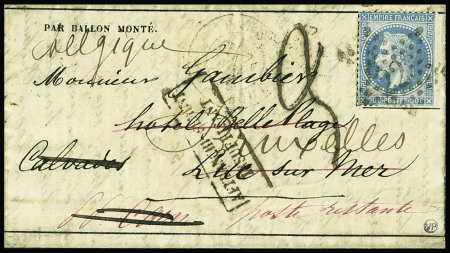 PAR BALLON MONTÉ.
Belgique
EMPIRE FRANÇAIS
20 C POSTES 20 C
Monsieur Gambier
hotel Belle Plage
Bruxelles
Calvados Luc sur Mer
poste restante
VP